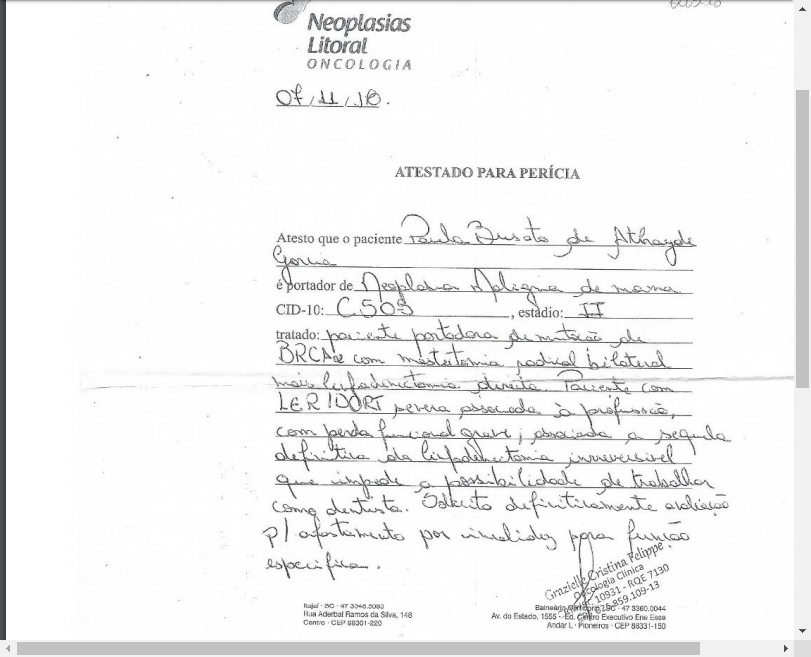 Neoplasias
Litoral
ONCOLOGIA
07/11/18.
ATESTADO PARA PERÍCIA
Atesto que o paciente Paula Busato de Athayde
é portador de Neoplasia Maligna de mama
CID-10: C509, estádio: II
tratado: paciente portadora de mutação de
BRCA com mastectomia radical bilateral
mais linfadenectomia direita. Paciente com
LER/DORT severa associada à profissão,
com perda funcional grave, associada a sequela
definitiva da linfadenectomia irreversível
que impede a possibilidade de trabalhar
como dentista. Solicito definitivamente avaliação
p/ afastamento por invalidez para função
específica.
Grazielle Cristina Felippe
Oncologia Clínica
10931 - RQE 7130
859.109-13
Itajaí - SC - 47 3348.5093
Rua Aderbal Ramos da Silva, 148
Centro - CEP 88301-220
Balneário Camboriú / SC - 47 3360.0044
Av. do Estado, 1555 - Ed. Centro Executivo Ene Esse
Andar L - Pioneiros - CEP 88331-150